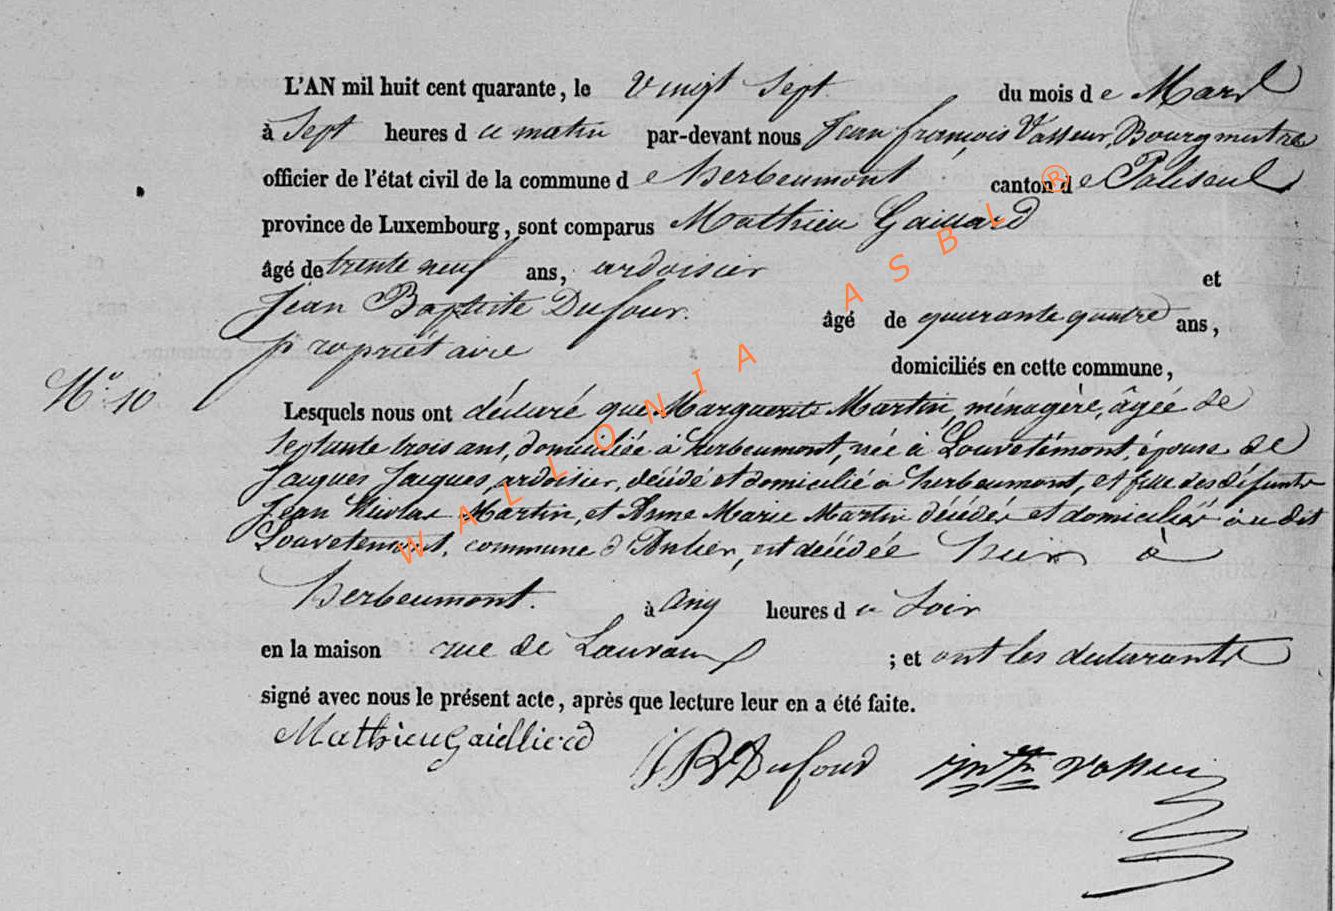 L'AN mil huit cent quarante, le vingt sept du mois de Mars
à Sept heures d u matin par-devant nous Jean françois Vasseur, Bourgmestre
officier de l'état civil de la commune de herbeumont canton de Paliseul
province de Luxembourg, sont comparus Mathieu Gaillard
âgé de trente neuf ans, ardoisier et
Jean Baptiste Dufour. âgé de quarante quatre ans,
propriétaire domiciliés en cette commune,
N° 10
Lesquels nous ont déclaré que Marguerite Martin, ménagère, âgée de
septante trois ans, domiciliée à herbeumont, née à Louvetémont, épouse de
Jacques Jacques, ardoisier, décédé et domicilié à herbeumont, et fille des défunts
Jean Nicolas Martin, et Anne Marie Martin décédés et domiciliés au dit
Louvetemont, commune d'Anlier, est décédée hier à
herbeumont. à cinq heures du Soir
en la maison rue de Lauvaux ; et ont les déclarants
signé avec nous le présent acte, après que lecture leur en a été faite.
Mathieu Gaielliard
JB Dufour Vasseur
WALLONIA ASBL ®